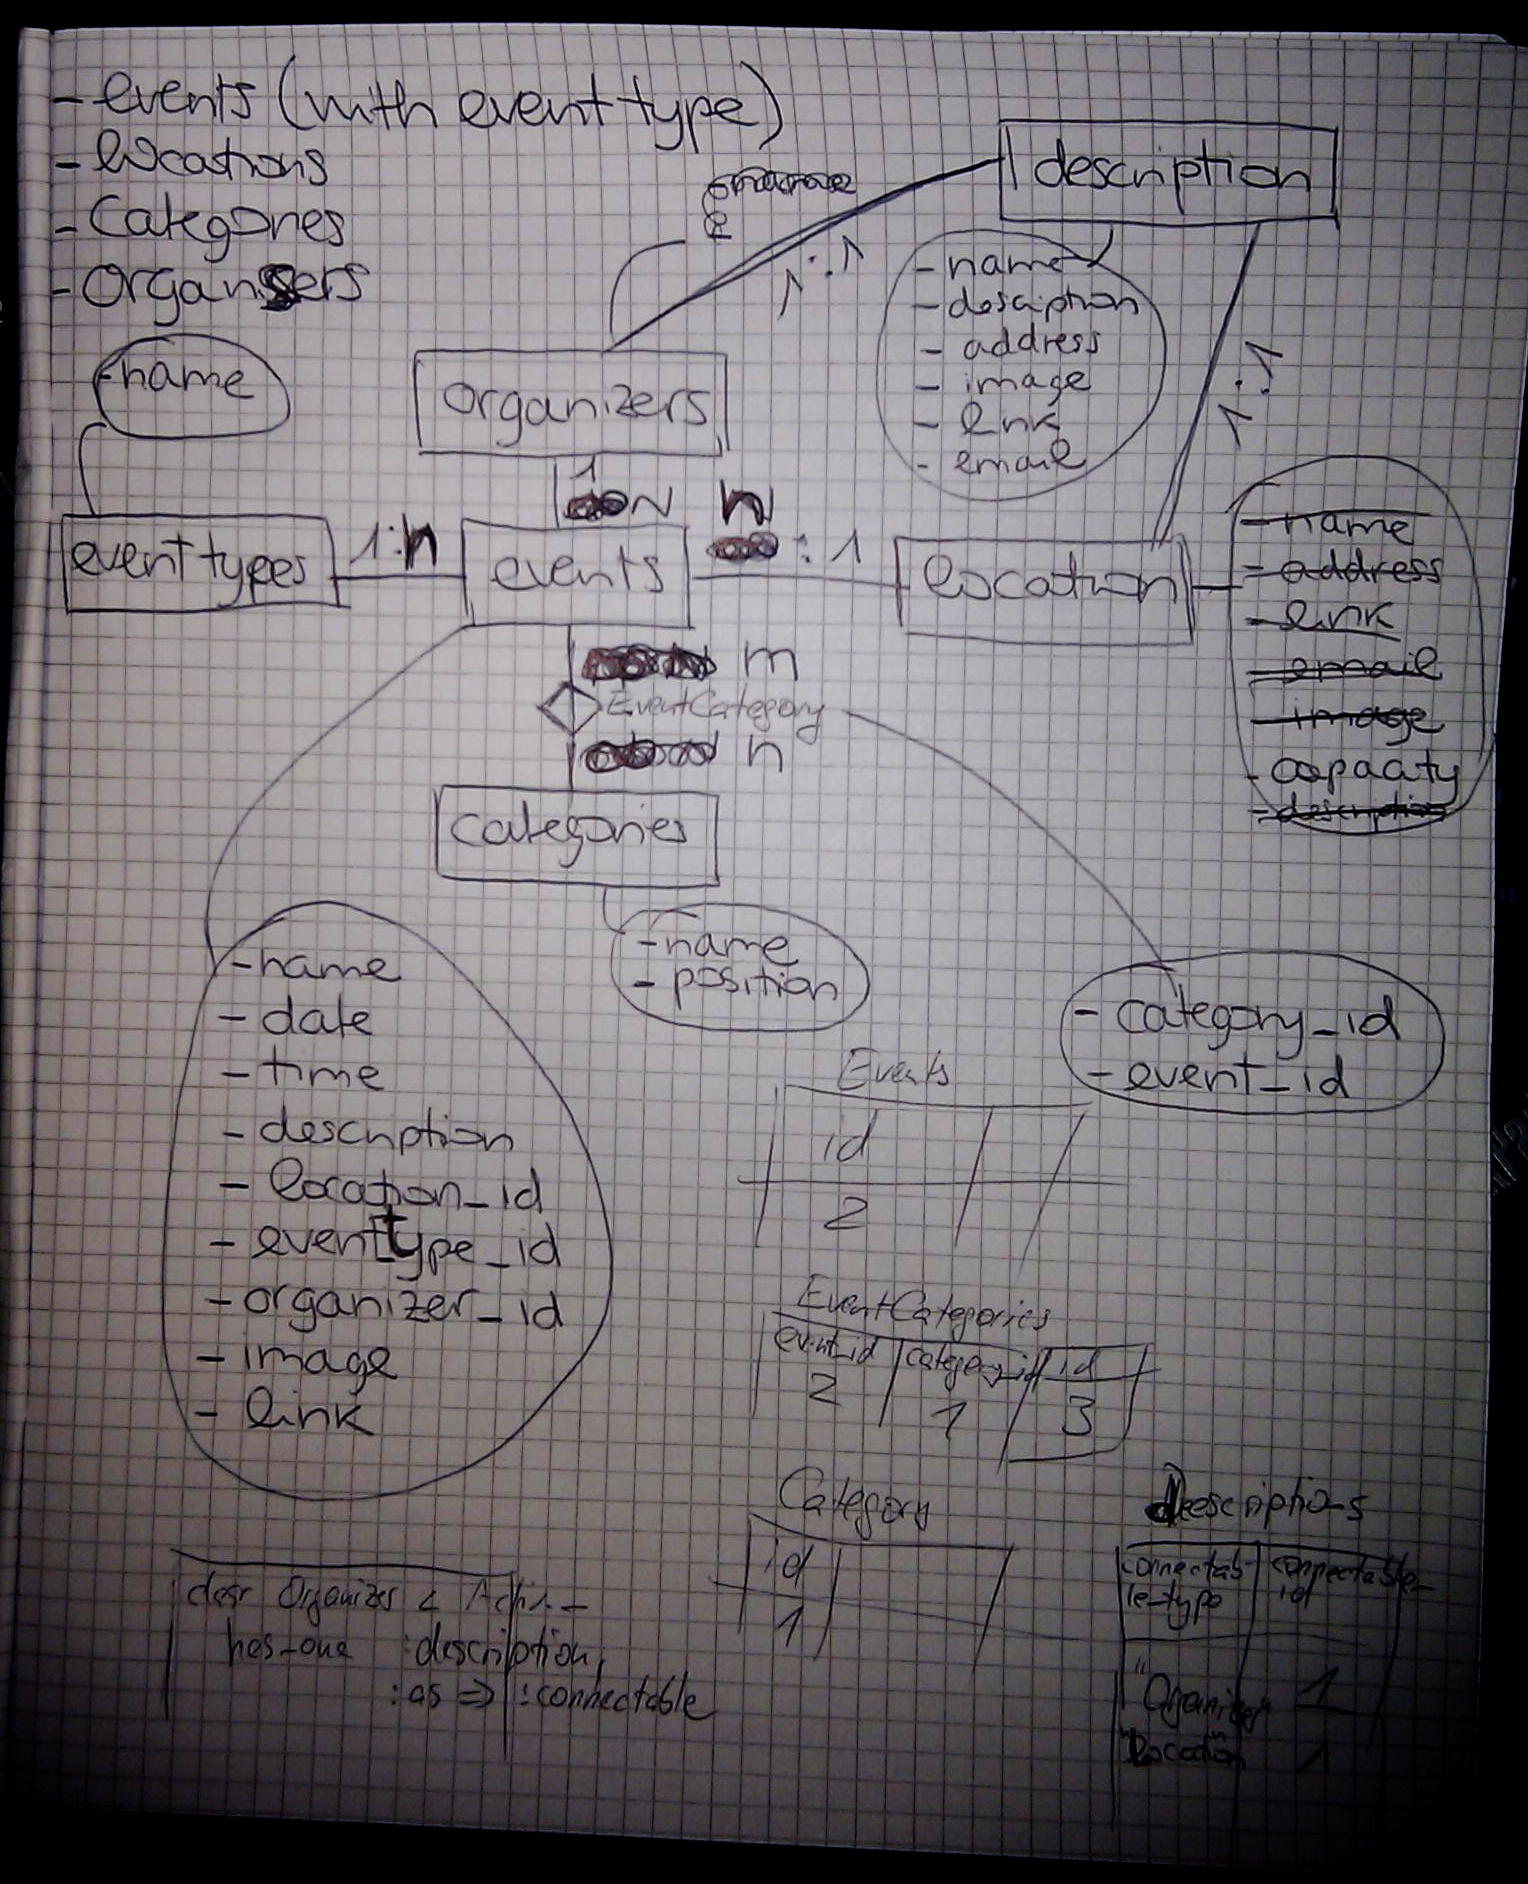 - events (with event type)
- locations
- Categories
- organisers
description
1:1
- name
- description
- address
- image
- link
- email
-name
organizers
1
N
N
:1
1:1
event types
1:n
events
location
- name
- address
- link
- email
- image
- capacity
- description
m
EventCategory
n
categories
-name
- position
-name
- date
- time
- description
- location_id
- eventtype_id
- organizer_id
- image
- link
- category_id
- event_id
Events
id
2
EventCategories
event_id category_id id
2 1 3
Category
id
1
Descriptions
connectab-
le-type
connectable-
id
"Organizer" 1
"Location" 1
Organizer <
has-one :description,
:as => :connectable